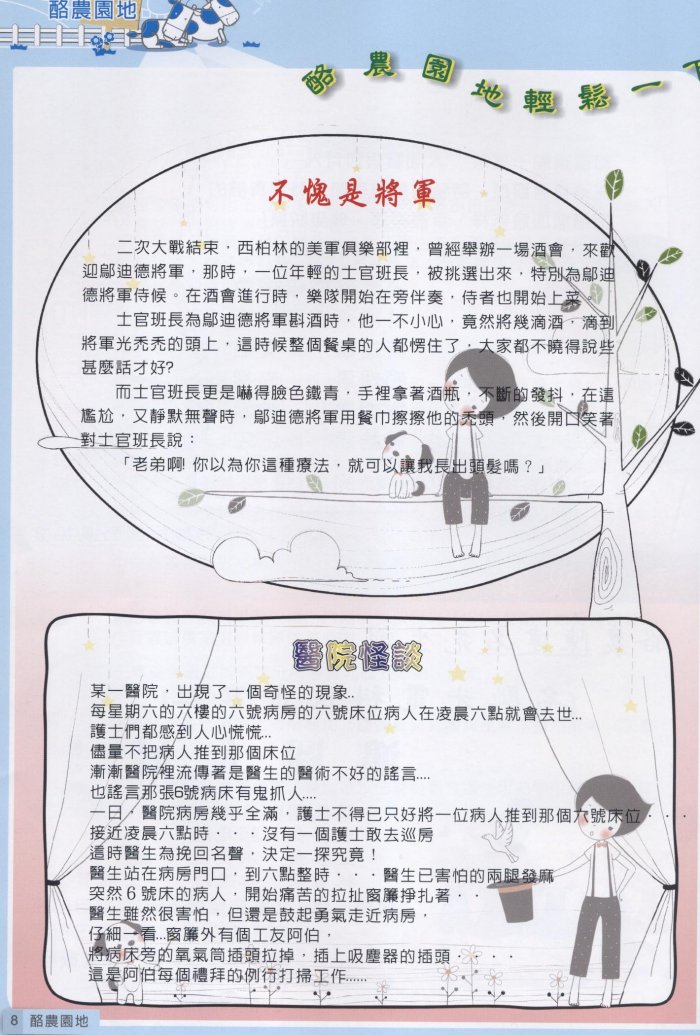 酪農園地
酪農園地輕鬆一下
不愧是將軍
二次大戰結束，西柏林的美軍俱樂部裡，曾經舉辦一場酒會，來歡
迎鄔迪德將軍，那時，一位年輕的士官班長，被挑選出來，特別為鄔迪
德將軍侍候。在酒會進行時，樂隊開始在旁伴奏，侍者也開始上菜。
士官班長為鄔迪德將軍斟酒時，他一不小心，竟然將幾滴酒，滴到
將軍光禿禿的頭上，這時候整個餐桌的人都愣住了，大家都不曉得說些
甚麼話才好?
而士官班長更是嚇得臉色鐵青，手裡拿著酒瓶，不斷的發抖，在這
尷尬，又靜默無聲時，鄔迪德將軍用餐巾擦擦他的禿頭，然後開口笑著
對士官班長說：
「老弟啊! 你以為你這種療法，就可以讓我長出頭髮嗎？」
醫院怪談
某一醫院，出現了一個奇怪的現象..
每星期六的六樓的六號病房的六號床位病人在凌晨六點就會去世...
護士們都感到人心慌慌...
儘量不把病人推到那個床位
漸漸醫院裡流傳著是醫生的醫術不好的謠言....
也謠言那張6號病床有鬼抓人....
一日，醫院病房幾乎全滿，護士不得已只好將一位病人推到那個六號床位．．．
接近凌晨六點時．．．沒有一個護士敢去巡房
這時醫生為挽回名聲，決定一探究竟！
醫生站在病房門口，到六點整時．．．醫生已害怕的兩腿發麻
突然６號床的病人，開始痛苦的拉扯窗簾掙扎著．．
醫生雖然很害怕，但還是鼓起勇氣走近病房，
仔細一看...窗簾外有個工友阿伯，
將病床旁的氧氣筒插頭拉掉，插上吸塵器的插頭．．．．
這是阿伯每個禮拜的例行打掃工作......
8 酪農園地